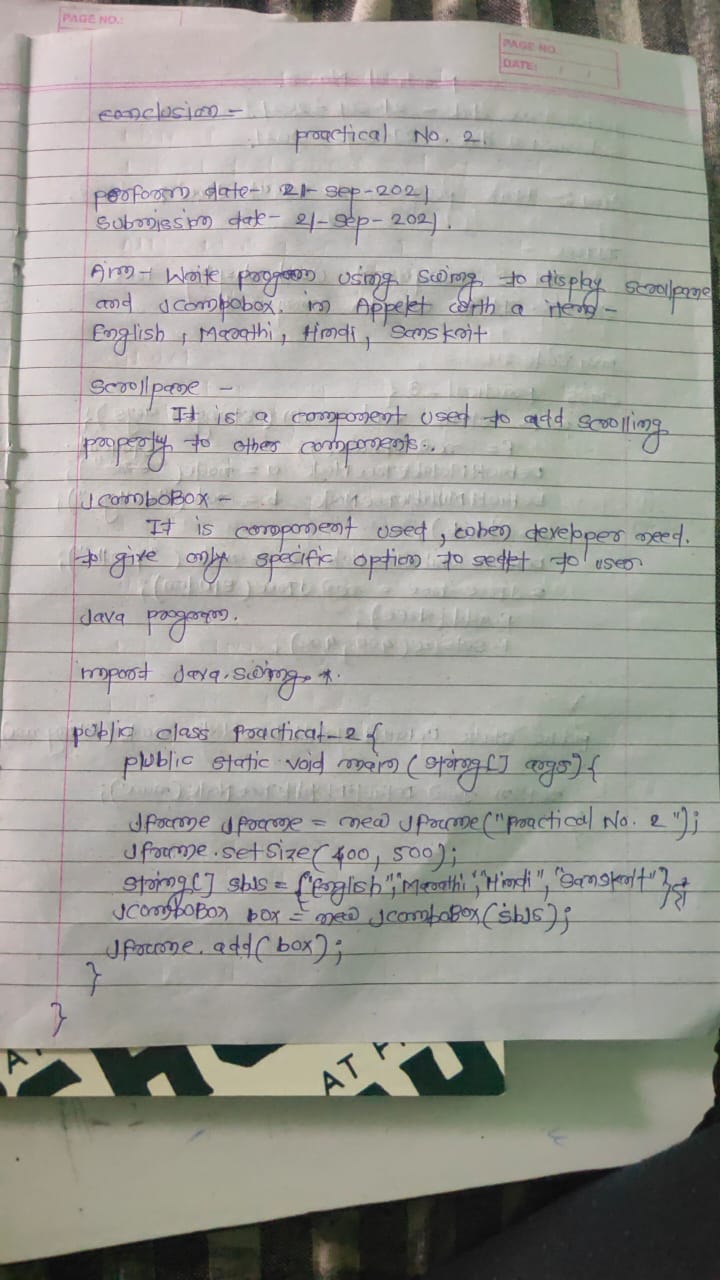 PAGE NO.:
PAGE NO.
DATE: / /
conclusion -
practical No. 2.
perform date- 21-sep-2021
submission date- 21-sep-2021.
Aim- Write program using swing to display scrollpane
and Jcombobox. in Appelet with a item-
English, Marathi, Hindi, Sanskrit
Scrollpane -
It is a component used to add scrolling
property to other components.
JcomboBox -
It is component used, when developer need.
to give only specific option to user
Java program.
import Java.swing.*.
public class Practical-2{
public static void main(string[] args){
Jframe Jframe = new Jframe("practical No. 2");
Jframe.setSize(400, 500);
string[] sbjs = {"English","Marathi","Hindi","Sanskrit"};
JcomboBox box = new JcomboBox(sbjs);
Jframe.add(box);
}
}
AT